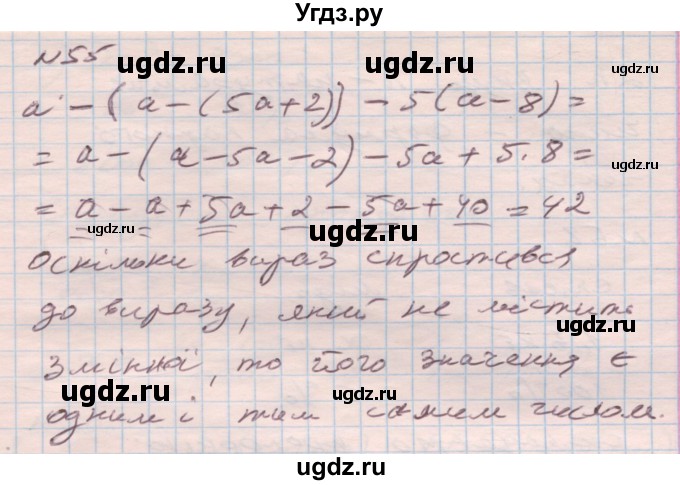 Угдз.ру
N55
ugdz.ru
ugdz.ru
a - (a - (5a + 2)) - 5(a - 8) =
ugdz.ru
= a - (a - 5a - 2) - 5a + 5 · 8 =
ugdz.ru
= a - a + 5a + 2 - 5a + 40 = 42
ugdz.ru
ugdz.ru
Оскільки вираз спростився
до виразу, який не містить
ugdz.ru
змінної, то його значення є
ugdz.ru
ugdz.ru
одним і тим самим числом.
ugdz.ru